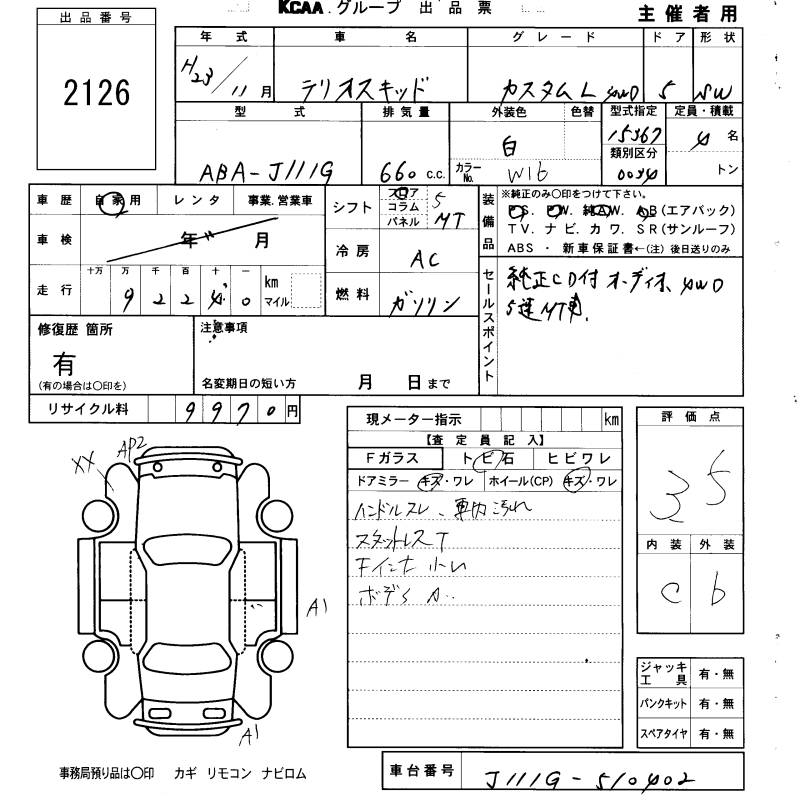 KCAA. グループ 出品票
主催者用
出品番号
2126
年式 車名 グレード ドア 形状
H23/11月 テリオスキッド カスタムL 4WD 5 SW
型式 排気量 外装色 色替 型式指定 定員・積載
ABA-J111G 660 C.C. 白 15367 4名
類別区分
カラーNo. W16 0034 トン
車歴 自家用 レンタ 事業.営業車
車検 年 月
走行 十万 万 千 百 十 一 km マイル
9 2 2 4 0
シフト フロア コラム パネル 5 MT
冷房 AC
燃料 ガソリン
装備品 ※純正のみ〇印をつけて下さい。
P.S. P.W. 純A.W. A.B(エアバック)
T.V. ナビ. カワ. S.R(サンルーフ)
ABS ・ 新車保証書←(注)後日送りのみ
セールスポイント
純正CD付オーディオ、4WD
5速MT車.
修復歴 箇所
有
(有の場合は〇印を)
注意事項
名変期日の短い方 月 日まで
リサイクル料 9970円
現メーター指示 km
【査定員記入】
Fガラス トビ石 ヒビワレ
ドアミラー キズ・ワレ ホイール(CP) キズ・ワレ
ハンドルスレ、車内汚れ
スタットレスT
Fインナー小レ
評価点
3 5
内装 外装
C b
XX AP2
A1
A1
ジャッキ工具 有・無
パンクキット 有・無
スペアタイヤ 有・無
事務局預り品は〇印 カギ リモコン ナビロム
車台番号 J111G-510402